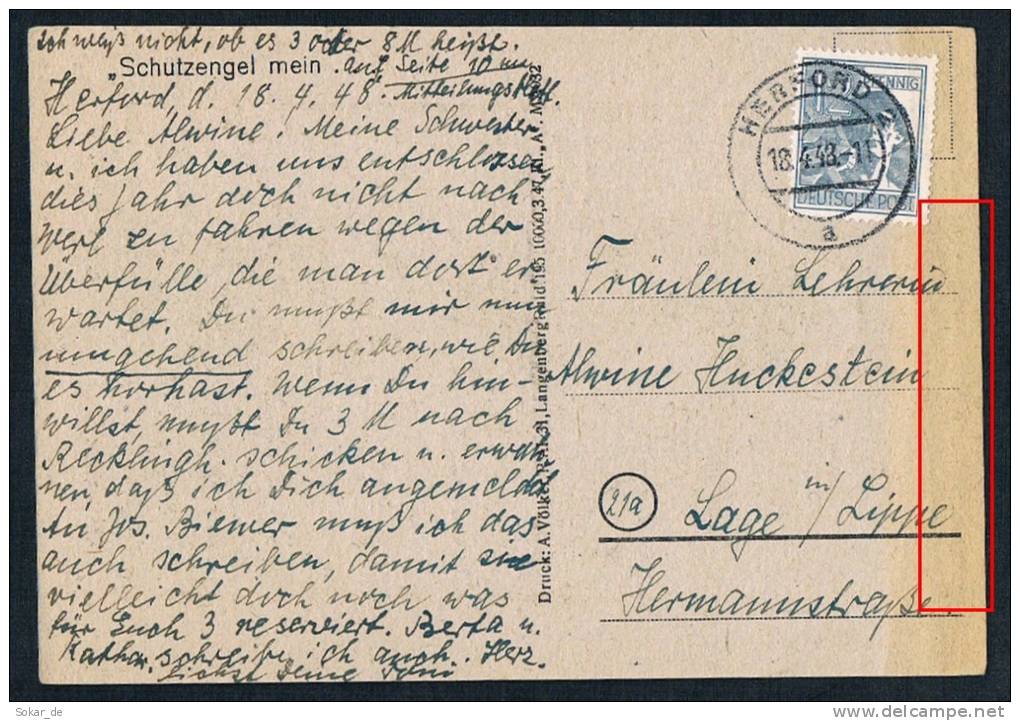 Ich weiß nicht, ob es 3 oder 8 M heißt.
"Schutzengel mein auf Seite 10 im
Mitteilungsbl.
Herford, d. 18. 4. 48.
Liebe Alwine! Meine Schwester
u. ich haben uns entschlossen
dies Jahr doch nicht nach
Werl zu fahren wegen der
Überfülle, die man dort er
wartet. Du mußt mir nun
umgehend schreiben, wie Du
es vorhast. Wenn Du hin-
willst, mußt Du 3 M nach
Recklingh. schicken u. erwäh
nen, daß ich Dich angemeldet
An Jos. Biemer muß ich das
auch schreiben, damit sie
vielleicht doch noch was
für Euch 3 reserviert. Berta u.
Kathar. schreibe ich auch. Herz.
lichst Deine Toni
Druck: A. Völker, Langenberg Rhld 195 10000,3.47,Kl. „A"
HERFORD 2
18.4.48.-11
a
12 PFENNIG
DEUTSCHE POST
Fräulein Lehrerin
Alwine Huckestein
21a
Lage in/Lippe
Hermannstraße.
Sokar_de
www.delcampe.net